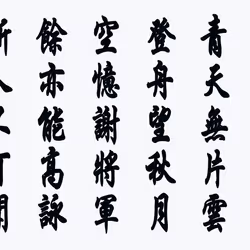 青天無片雲
登舟望秋月
空憶謝將軍
餘亦能高詠